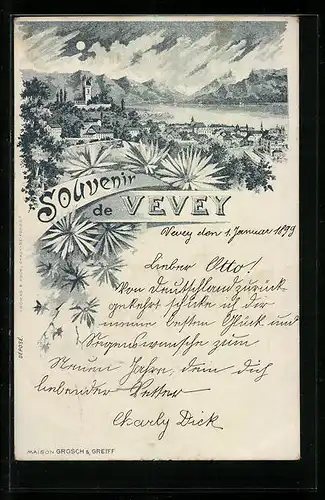 Souvenir
de VEVEY
Vevey den 1. Januar 1899
Lieber Otto!
Von Deutschland zurück-
gekehrt schicke ich dir
meine besten Glück und
Segenswünsche zum
Neuen Jahre, dem dich
liebender Vetter
Charly Dick
DÉPOSÉ
MAISON GROSCH & GREIFF